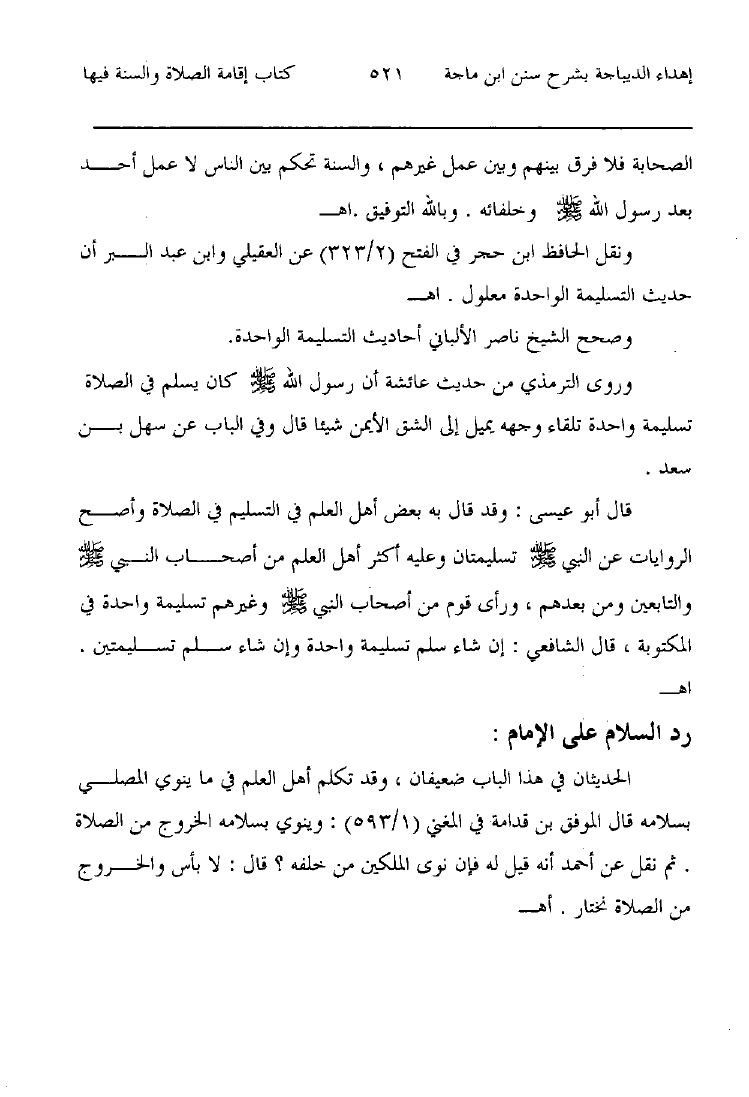 إهداء الديباجة بشرح سنن ابن ماجة ٥٢١ كتاب إقامة الصلاة والسنة فيها
الصحابة فلا فرق بينهم وبين عمل غيرهم ، والسنة تحكم بين الناس لا عمل أحـــد
بعد رسول الله ﷺ وخلفائه . وبالله التوفيق .اهــ
ونقل الحافظ ابن حجر في الفتح (٣٢٣/٢) عن العقيلي وابن عبد الـــبر أن
حديث التسليمة الواحدة معلول . اهــ
وصحح الشيخ ناصر الألباني أحاديث التسليمة الواحدة.
وروى الترمذي من حديث عائشة أن رسول الله ﷺ كان يسلم في الصلاة
تسليمة واحدة تلقاء وجهه يميل إلى الشق الأيمن شيئا قال وفي الباب عن سهل بـــن
سعد .
قال أبو عيسى : وقد قال به بعض أهل العلم في التسليم في الصلاة وأصـــح
الروايات عن النبي ﷺ تسليمتان وعليه أكثر أهل العلم من أصحـــاب النـــبي ﷺ
والتابعين ومن بعدهم ، ورأى قوم من أصحاب النبي ﷺ وغيرهم تسليمة واحدة في
المكتوبة ، قال الشافعي : إن شاء سلم تسليمة واحدة وإن شاء ســـلم تســـليمتين .
اهــ
رد السلام على الإمام :
الحديثان في هذا الباب ضعيفان ، وقد تكلم أهل العلم في ما ينوي المصلـــي
بسلامه قال الموفق بن قدامة في المغني (٥٩٣/١) : وينوي بسلامه الخروج من الصلاة
. ثم نقل عن أحمد أنه قيل له فإن نوى الملكين من خلفه ؟ قال : لا بأس والخـــروج
من الصلاة نختار . أهــ